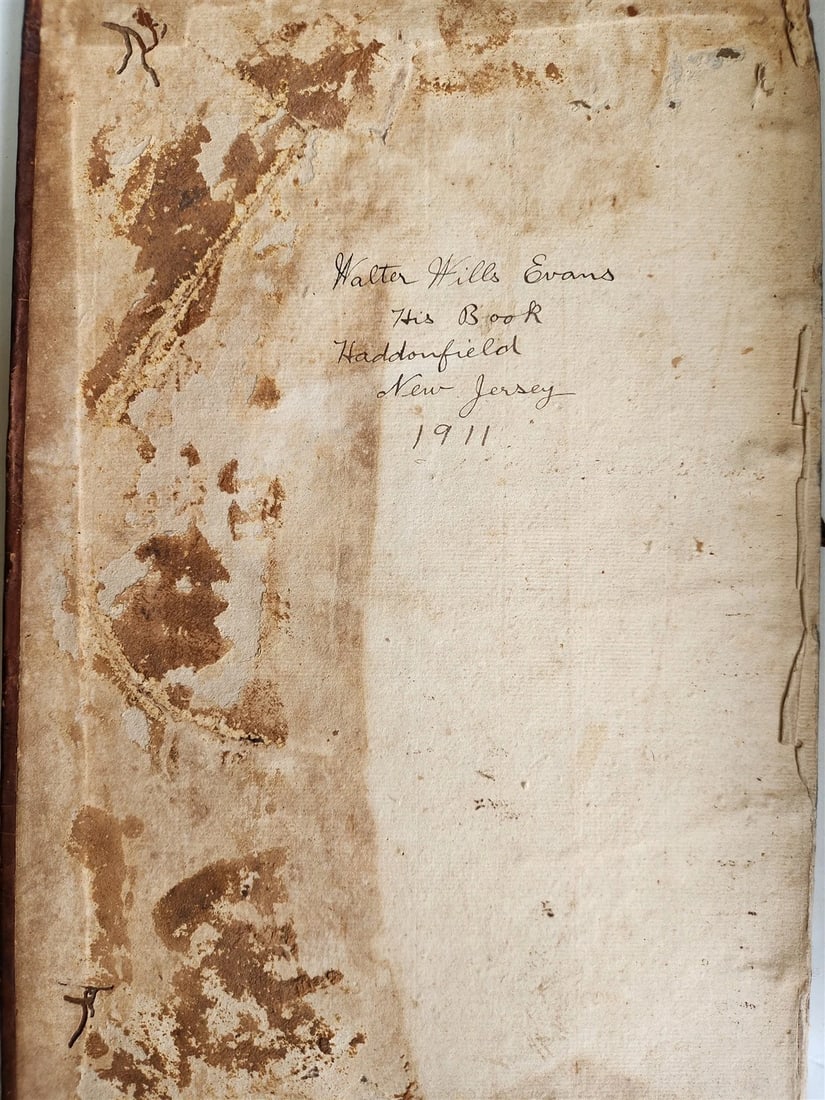 Walter Wills Evans
His Book
Haddonfield
New Jersey
1911